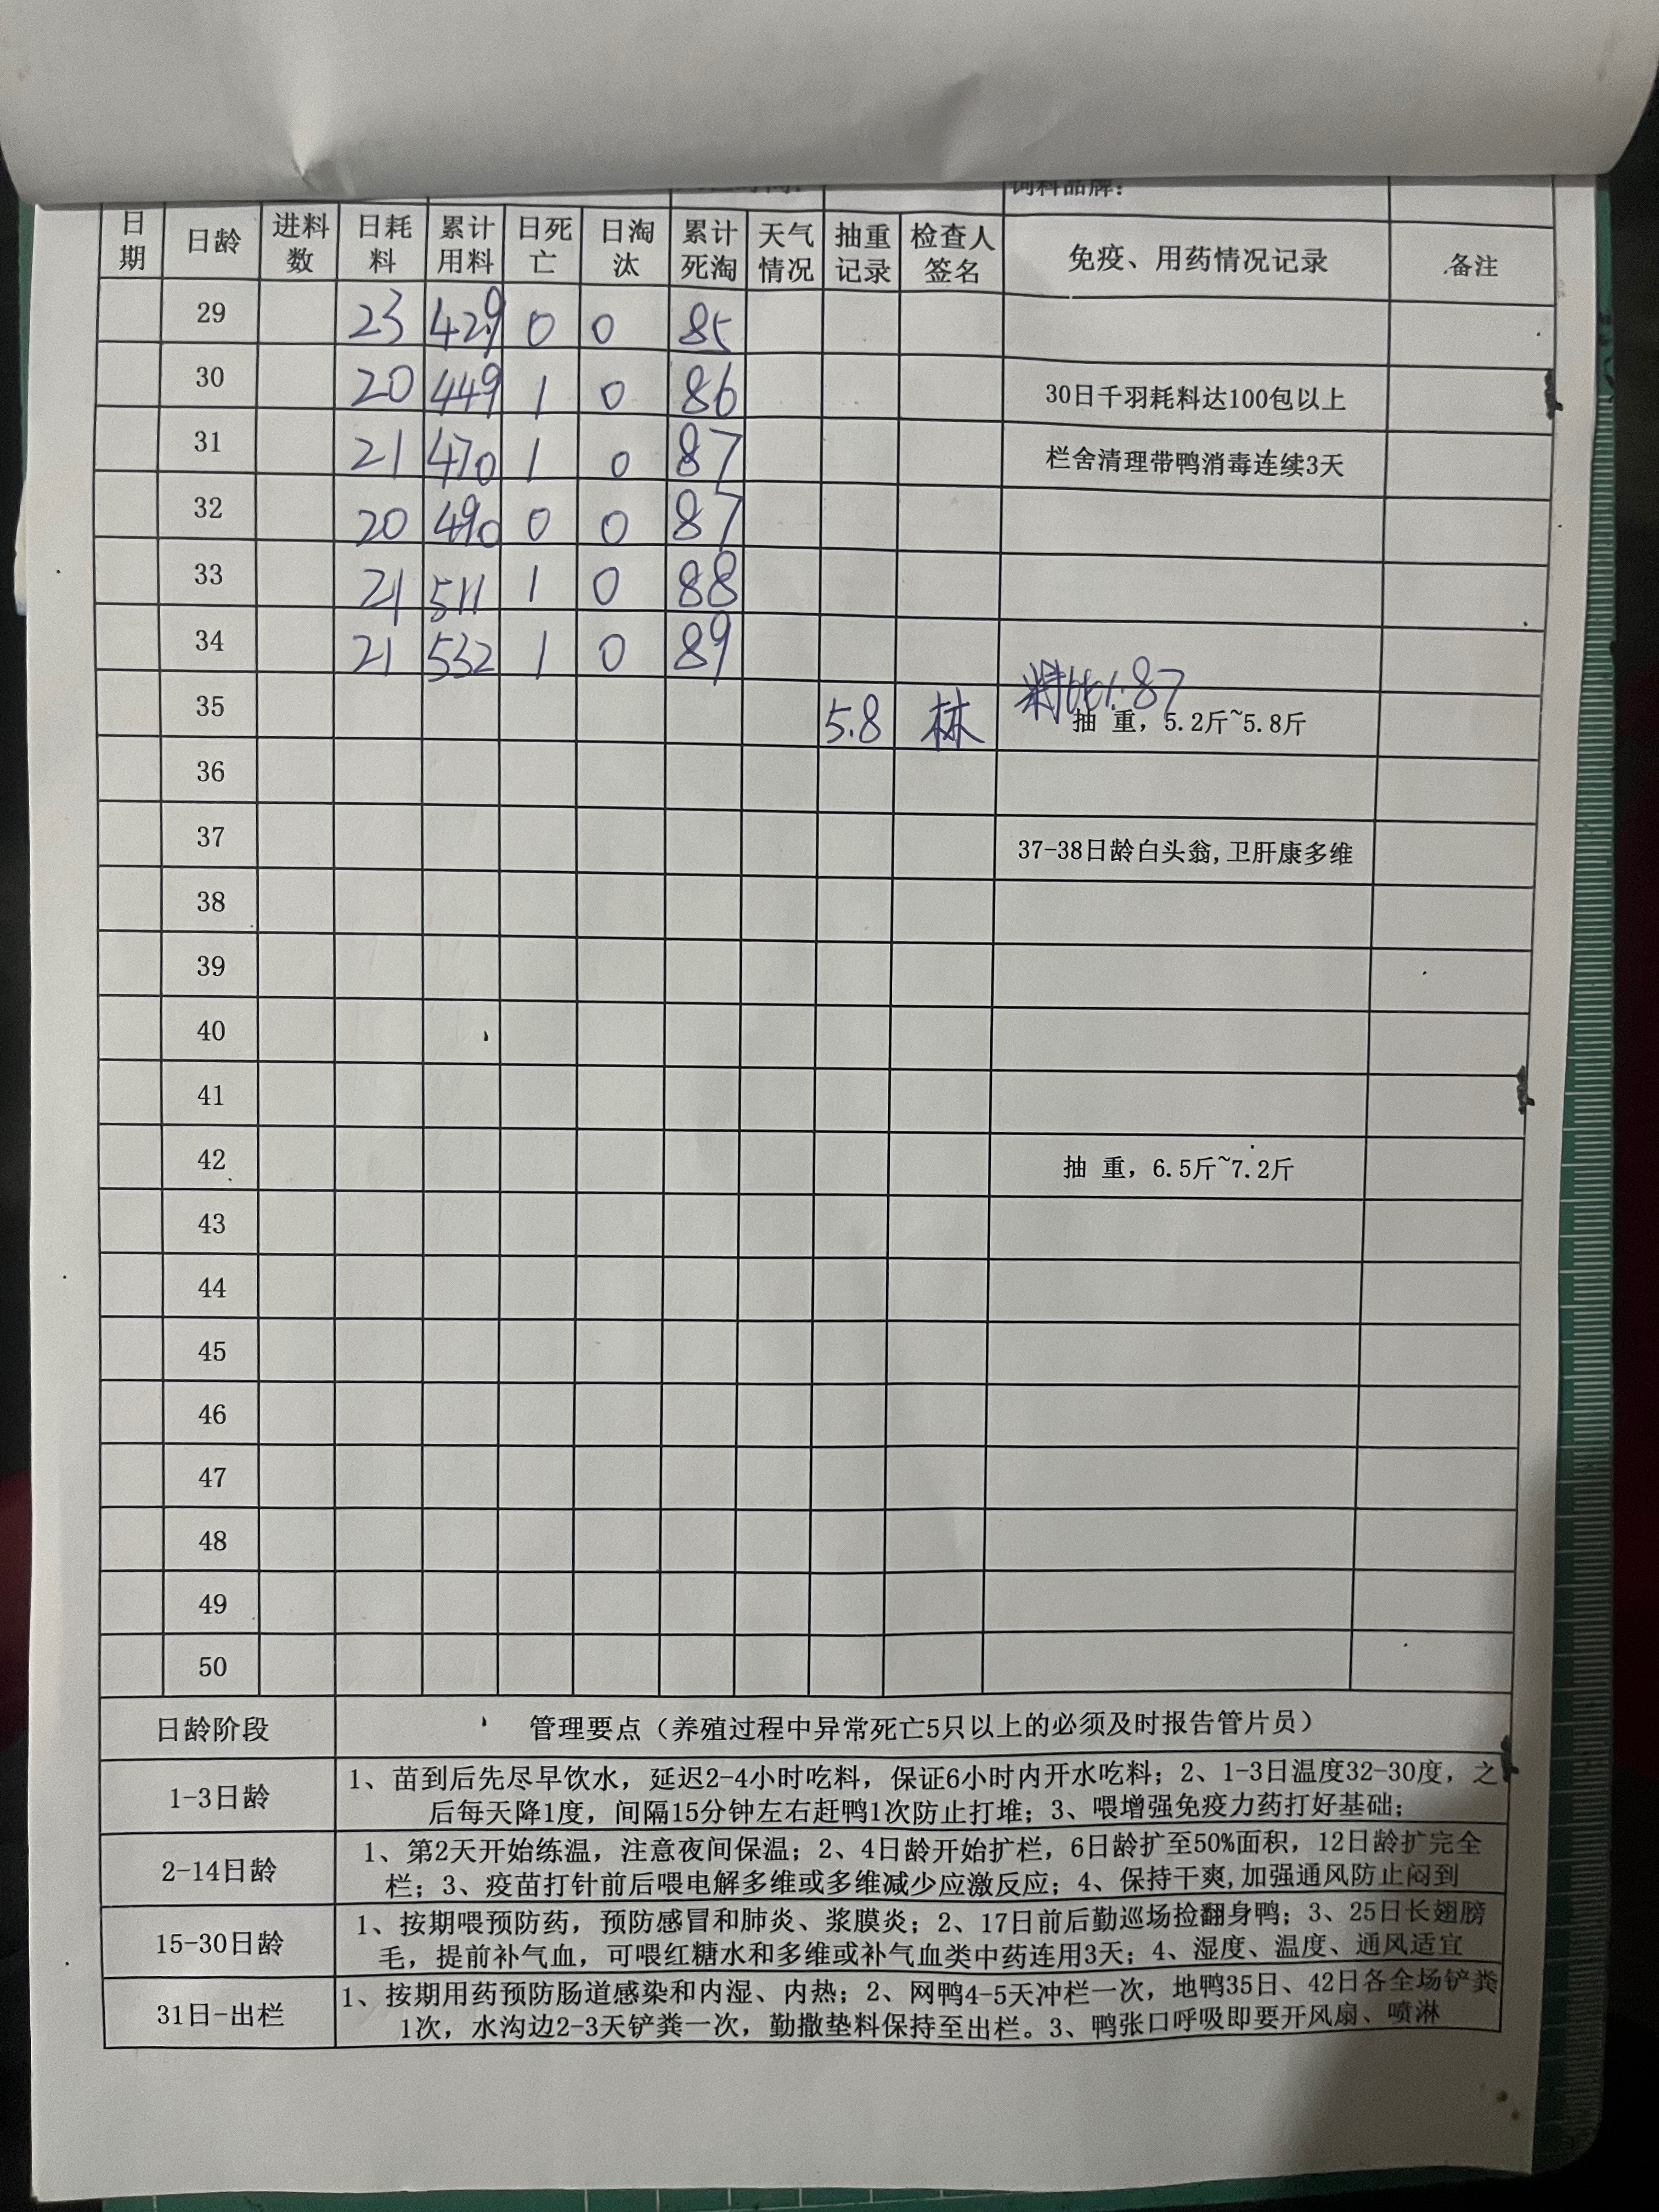 饲料品牌：
日期 日龄 进料数 日耗料 累计用料 日死亡 日淘汰 累计死淘 天气情况 抽重记录 检查人签名 免疫、用药情况记录 备注
29 23 429 0 0 85
30 20 449 1 0 86 30日千羽耗料达100包以上
31 21 470 1 0 87 栏舍清理带鸭消毒连续3天
32 20 490 0 0 87
33 21 511 1 0 88
34 21 532 1 0 89
料比1.87
35 5.8 林 抽 重，5.2斤~5.8斤
36
37 37-38日龄白头翁,卫肝康多维
38
39
40
41
42 抽 重，6.5斤~7.2斤
43
44
45
46
47
48
49
50
日龄阶段 管理要点（养殖过程中异常死亡5只以上的必须及时报告管片员）
1-3日龄 1、苗到后先尽早饮水，延迟2-4小时吃料，保证6小时内开水吃料；2、1-3日温度32-30度，之
后每天降1度，间隔15分钟左右赶鸭1次防止打堆；3、喂增强免疫力药打好基础；
2-14日龄 1、第2天开始练温，注意夜间保温；2、4日龄开始扩栏，6日龄扩至50%面积，12日龄扩完全
栏；3、疫苗打针前后喂电解多维或多维减少应激反应；4、保持干爽,加强通风防止闷到
15-30日龄 1、按期喂预防药，预防感冒和肺炎、浆膜炎；2、17日前后勤巡场捡翻身鸭；3、25日长翅膀
毛，提前补气血，可喂红糖水和多维或补气血类中药连用3天；4、湿度、温度、通风适宜
31日-出栏 1、按期用药预防肠道感染和内湿、内热；2、网鸭4-5天冲栏一次，地鸭35日、42日各全场铲粪
1次，水沟边2-3天铲粪一次，勤撒垫料保持至出栏。3、鸭张口呼吸即要开风扇、喷淋